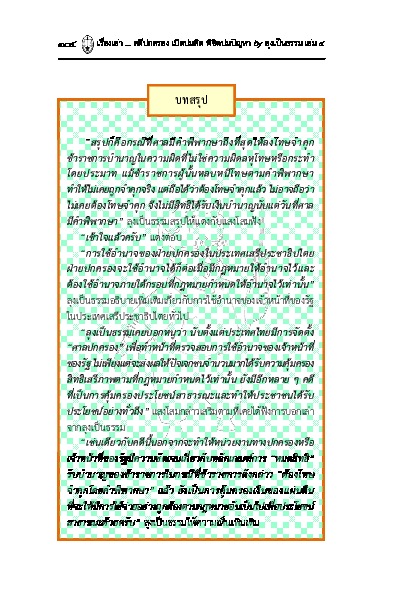 ๑๐๕ เรื่องเล่า ... คดีปกครอง เปิดปมคิด พิชิตปมปัญหา by ลุงเป็นธรรม เล่ม ๔
บทสรุป
"สรุปก็คือกรณีที่ศาลมีคำพิพากษาถึงที่สุดให้ลงโทษจำคุก
ข้าราชการบำนาญในความผิดที่ไม่ใช่ความผิดลหุโทษหรือกระทำ
โดยประมาท แม้ข้าราชการผู้นั้นหลบหนีโทษตามคำพิพากษา
ทำให้ไม่เคยถูกจำคุกจริง แต่ถือได้ว่าต้องโทษจำคุกแล้ว ไม่อาจถือว่า
ไม่เคยต้องโทษจำคุก จึงไม่มีสิทธิได้รับเงินบำนาญนับแต่วันที่ศาล
มีคำพิพากษา" ลุงเป็นธรรมสรุปให้แดงกับแสงโสมฟัง
"เข้าใจแล้วครับ" แดงตอบ
"การใช้อำนาจของฝ่ายปกครองในประเทศเสรีประชาธิปไตย
ฝ่ายปกครองจะใช้อำนาจได้ก็ต่อเมื่อมีกฎหมายให้อำนาจไว้และ
ต้องใช้อำนาจภายใต้กรอบที่กฎหมายกำหนดให้อำนาจไว้เท่านั้น"
ลุงเป็นธรรมอธิบายเพิ่มเติมเกี่ยวกับการใช้อำนาจของเจ้าหน้าที่ของรัฐ
ในประเทศเสรีประชาธิปไตยทั่วไป
"ลุงเป็นธรรมเคยบอกหนูว่า นับตั้งแต่ประเทศไทยมีการจัดตั้ง
"ศาลปกครอง" เพื่อทำหน้าที่ตรวจสอบการใช้อำนาจของเจ้าหน้าที่
ของรัฐ ไม่เพียงแต่จะส่งผลให้ปัจเจกชนจำนวนมากได้รับความคุ้มครอง
สิทธิเสรีภาพตามที่กฎหมายกำหนดไว้เท่านั้น ยังมีอีกหลาย ๆ คดี
ที่เป็นการคุ้มครองประโยชน์สาธารณะและทำให้ประชาชนได้รับ
ประโยชน์อย่างทั่วถึง" แสงโสมกล่าวเสริมตามที่เคยได้ฟังการบอกเล่า
จากลุงเป็นธรรม
"เช่นเดียวกับคดีนี้นอกจากจะทำให้หน่วยงานทางปกครองหรือ
เจ้าหน้าที่ของรัฐมีความชัดเจนเกี่ยวกับหลักเกณฑ์การ "หมดสิทธิ"
รับบำนาญของข้าราชการในกรณีที่ข้าราชการดังกล่าว "ต้องโทษ
จำคุกโดยคำพิพากษา" แล้ว ยังเป็นการคุ้มครองเงินของแผ่นดิน
ที่จะให้มีการใช้จ่ายอย่างถูกต้องตามกฎหมายอันเป็นไปเพื่อประโยชน์
สาธารณะด้วยครับ" ลุงเป็นธรรมให้ความเห็นเพิ่มเติม